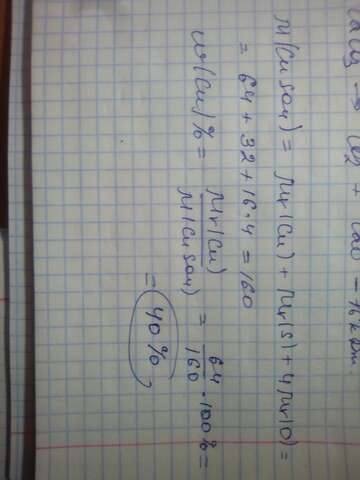 M(CuSO4) = Mr(Cu) + Mr(S) + 4Mr(O) =
= 64 + 32 + 16·4 = 160
w(Cu)% = Mr(Cu) / M(CuSO4) = 64/160 · 100% =
= 40%